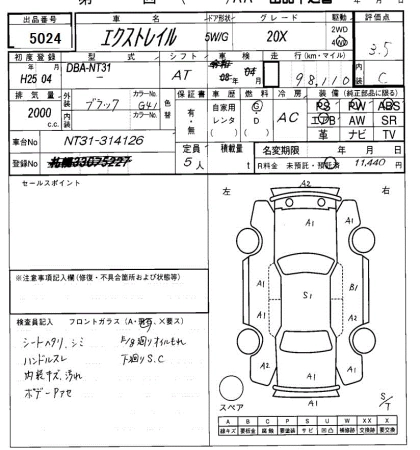 出品番号 車名 ドア形状 グレード 駆動 評価点
5024 エクストレイル 5W/G 20X 2WD 4WD 3.5
初度登録 型式 シフト 車検 走行(km・マイル) 内装
H25 04 DBA-NT31 AT 08年 04月 98,110 C
排気量 外装 カラーNo. 色替 保証書 車歴 燃料 冷房 装備(純正部品に限る)
2000 c.c. ブラック G41 有・無 自家用 レンタ ( ) G・D ( ) AC PS PW ABS
内装 カラーNo. エアB AW SR
革 ナビ TV
車台No NT31-314126 定員 積載量 名変期限 年 月 日
登録No 札幌33075227 5人 t R料金 未預託・預託済 11,440円
セールスポイント 左 右
A2
A1
A1 A1
※注意事項記入欄(修復・不具合箇所および状態等)
A1 S1 B1 A1
検査員記入 フロントガラス(A・飛石・X要ス)
シートヘタリ、シミ E/B廻りオイルもれ
ハンドルスレ 下廻りS.C
内装キズ、汚れ
ボデーPアセ
A2 A1 A2
A1
スペア S/T
A B C P S U W X XX
線キズ 要板金 腐蝕 要塗装 サビ 凹凸 補修跡 要交換 交換跡